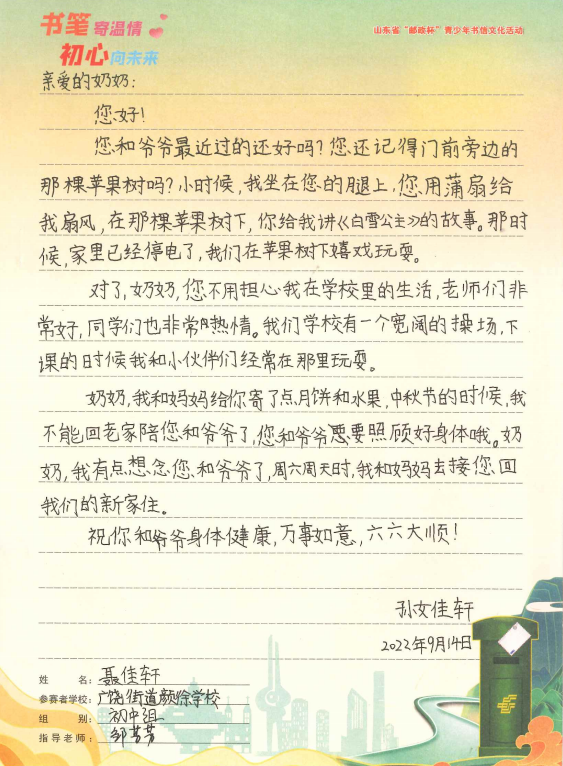 书笔寄温情
初心向未来
山东省“邮政杯”青少年书信文化活动
亲爱的奶奶:
您好!
您和爷爷最近过的还好吗?您还记得门前旁边的
那棵苹果树吗?小时候,我坐在您的腿上,您用蒲扇给
我扇风,在那棵苹果树下,你给我讲《白雪公主》的故事。那时
候,家里已经停电了,我们在苹果树下嬉戏玩耍。
对了,奶奶,您不用担心我在学校里的生活,老师们非
常好,同学们也非常热情。我们学校有一个宽阔的操场,下
课的时候我和小伙伴们经常在那里玩耍。
奶奶,我和妈妈给你寄了点月饼和水果,中秋节的时候,我
不能回老家陪您和爷爷了,您和爷爷要照顾好身体哦。奶
奶,我有点想念您和爷爷了,周六周天时,我和妈妈去接您回
我们的新家住。
祝你和爷爷身体健康,万事如意,六六大顺!
孙女佳轩
2022年9月14日
姓名:聂佳轩
参赛者学校:广饶街道颜徐学校
组别:初中组
指导老师:邹芳芳